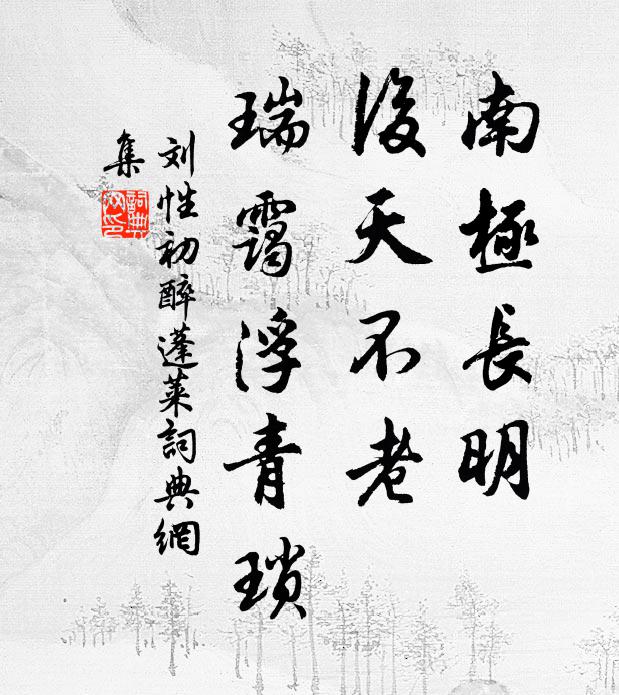 南極長明
後天不老
瑞靄浮青瑣
刘性初醉蓬萊詞典網
集
詞典
网印